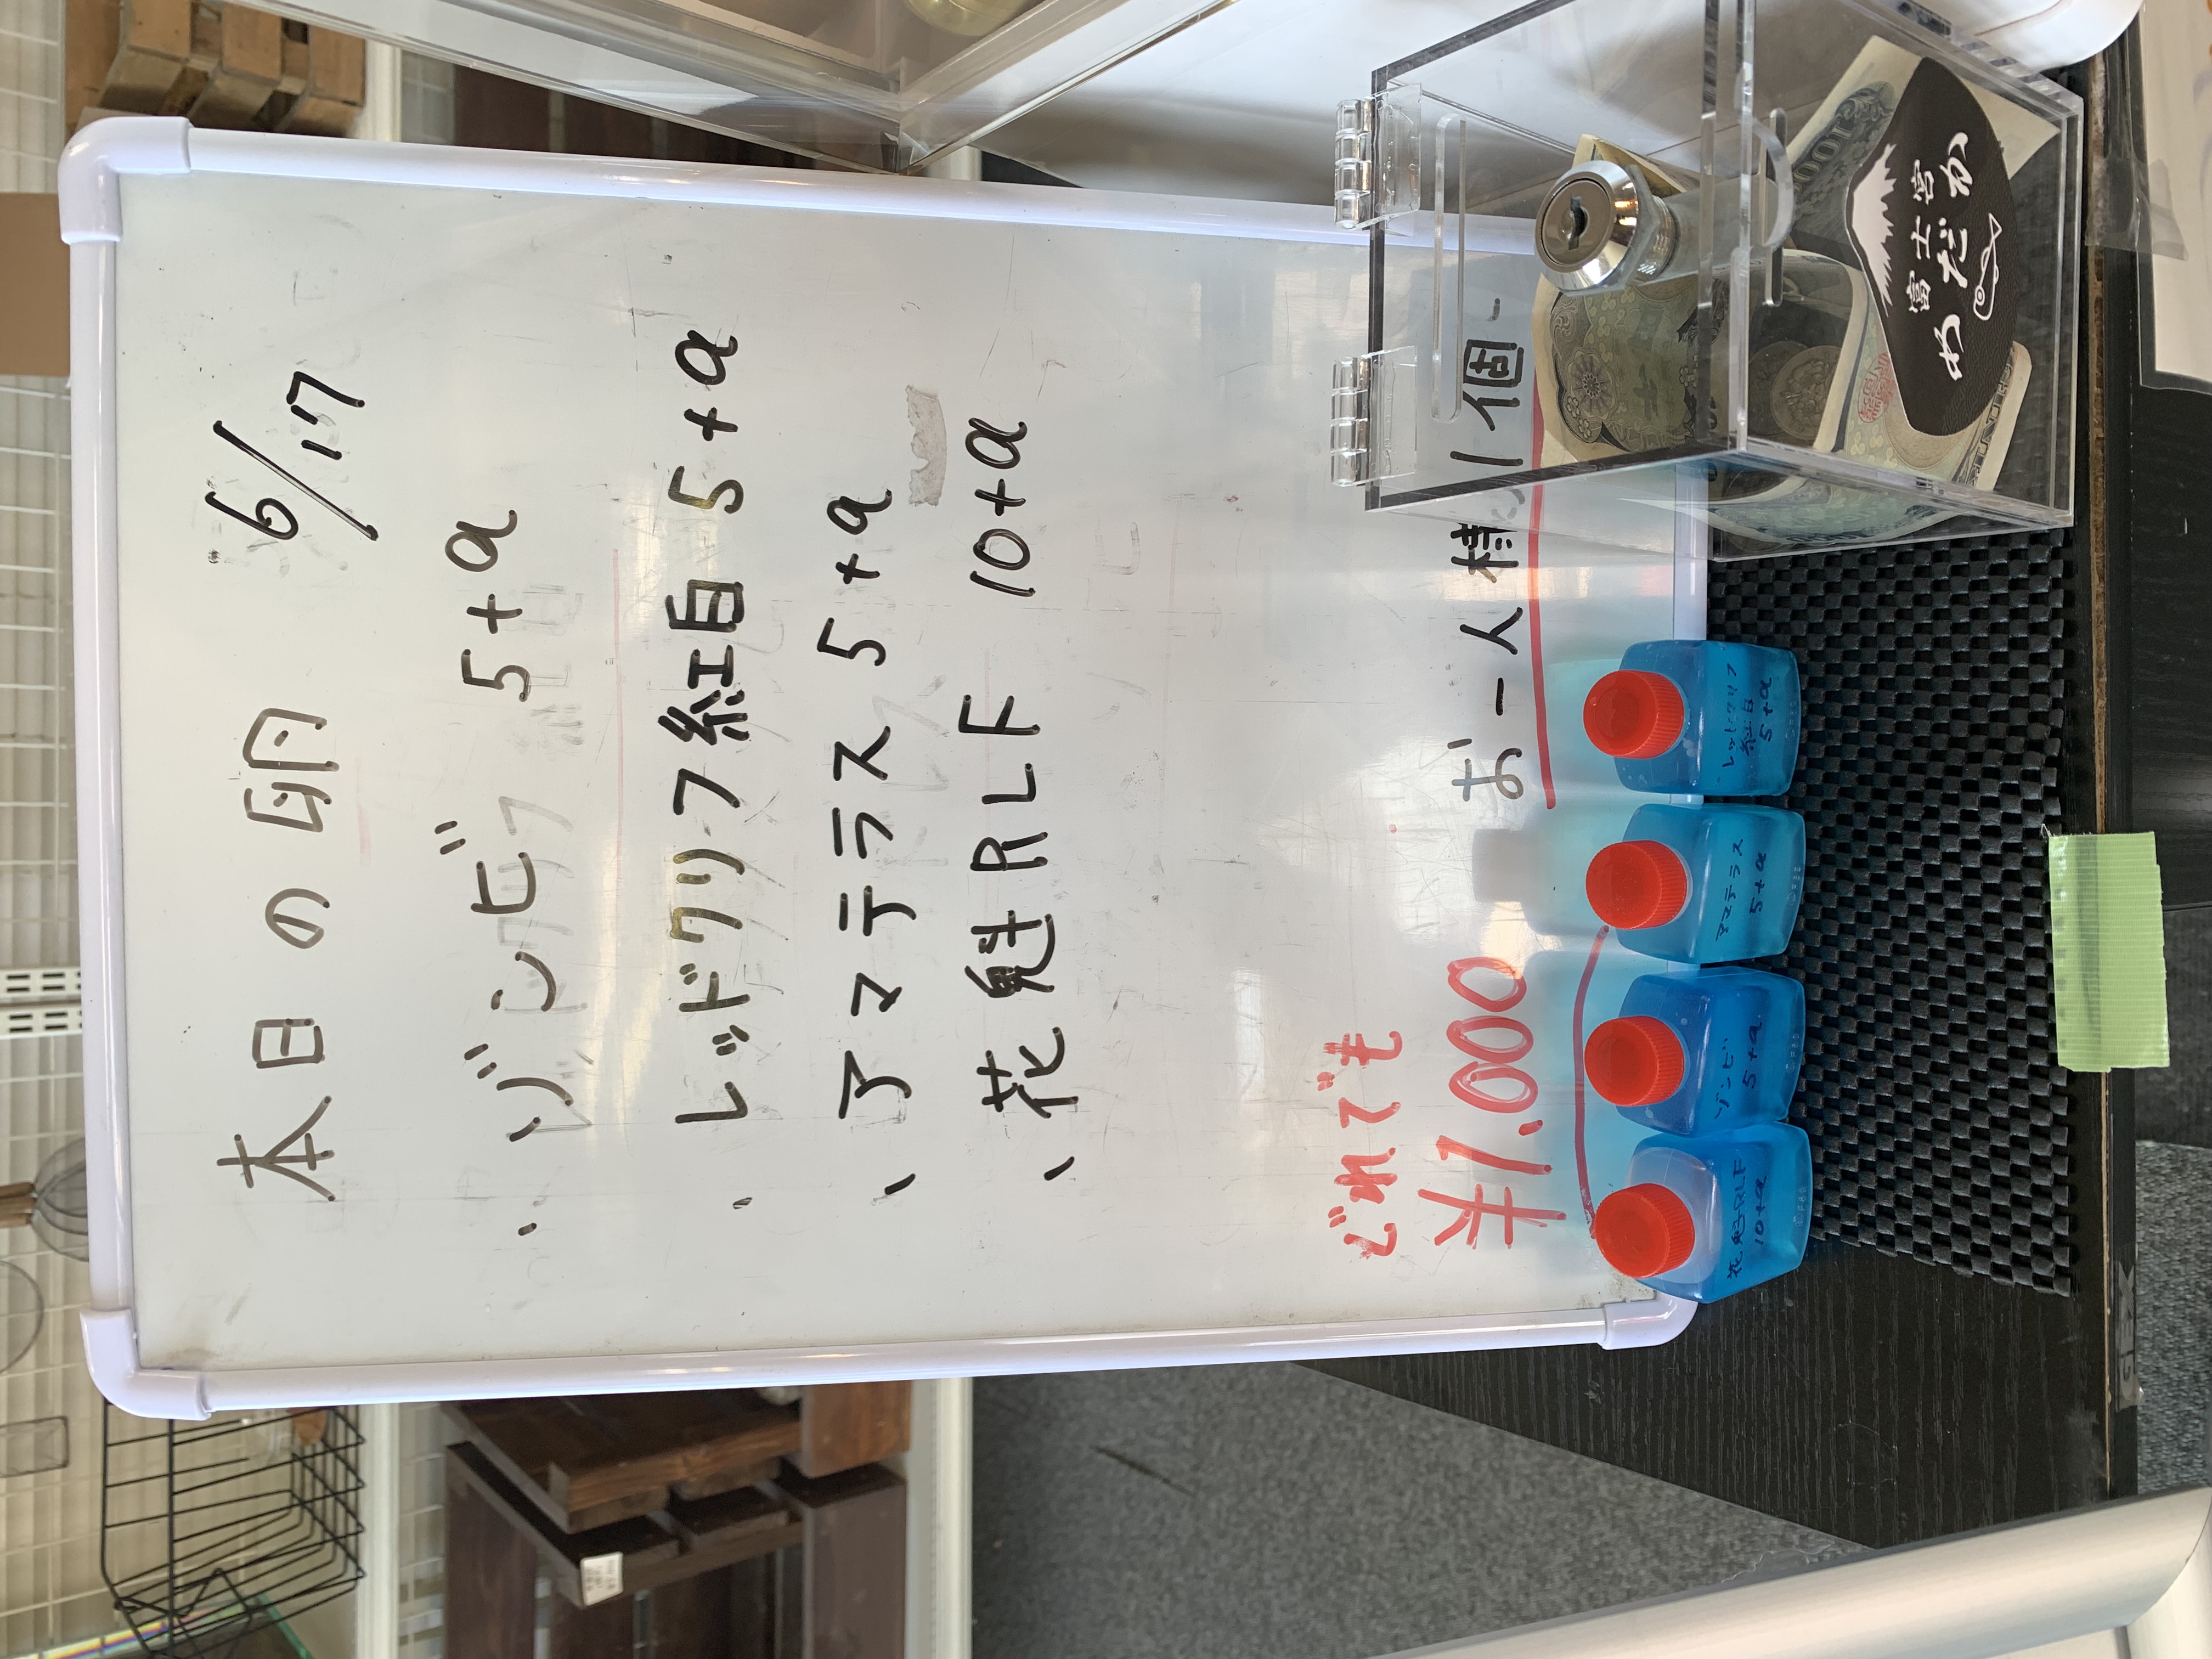 本日の卵 6/17
、ゾンビ 5+α
、レッドクリフ紅白 5+α
、アマテラス 5+α
、花魁RLF 10+α
どれでも
¥1.000
お一人様 1個
花魁RLF
10+α
ゾンビ
5+α
アマテラス
5+α
レッドクリフ
紅白
5+α
富士宮
めだか
1000
GEX